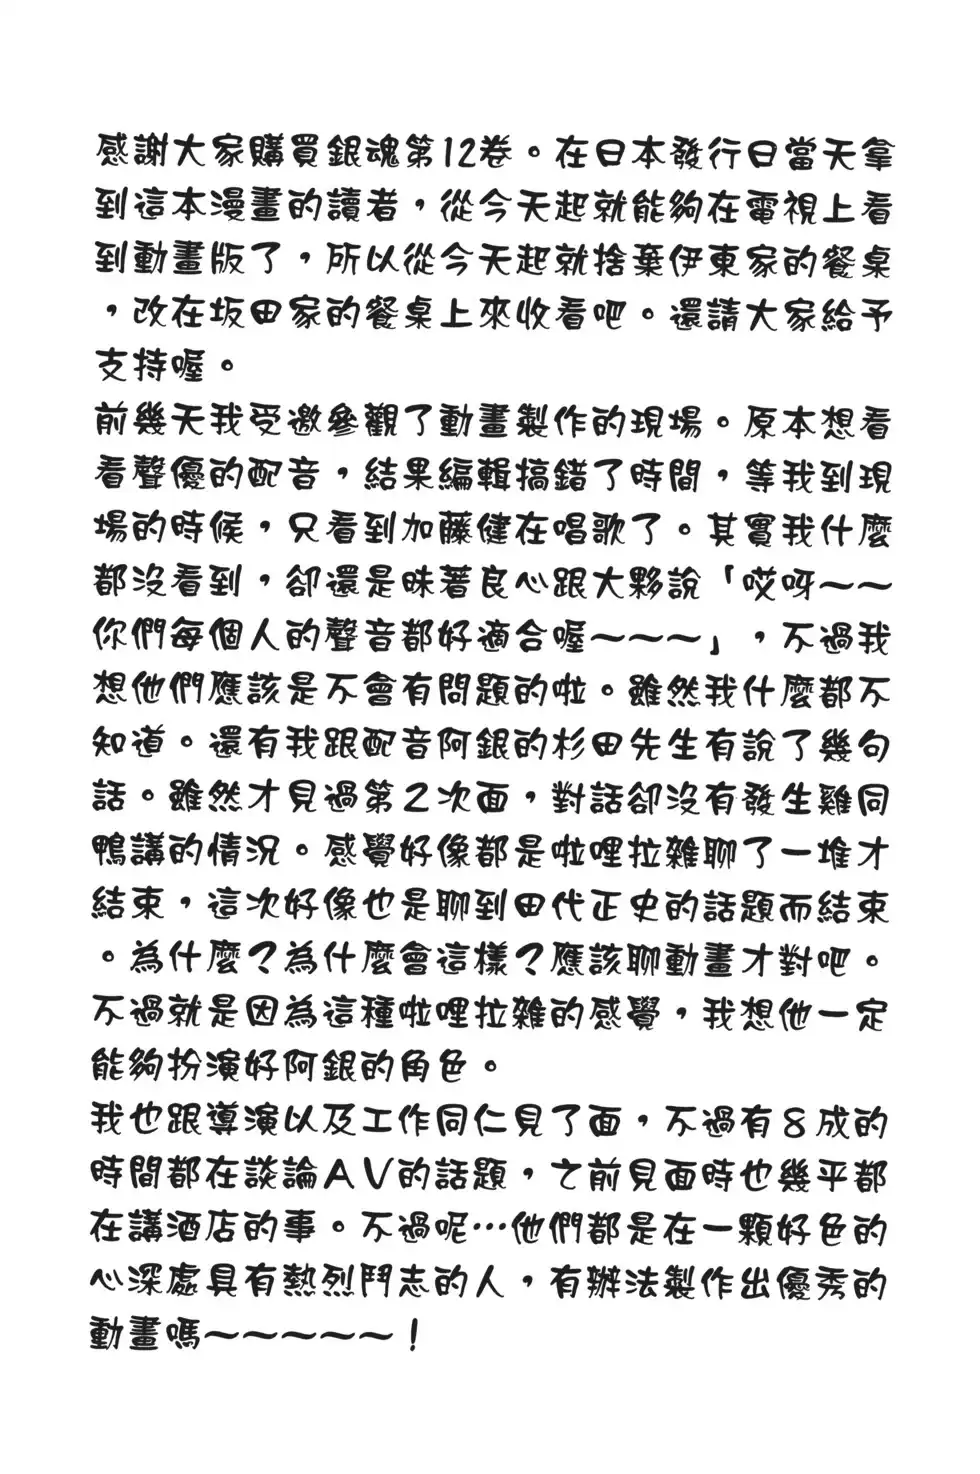 感謝大家購買銀魂第12卷。在日本發行日當天拿
到這本漫畫的讀者，從今天起就能夠在電視上看
到動畫版了，所以從今天起就捨棄伊東家的餐桌
，改在坂田家的餐桌上來收看吧。還請大家給予
支持喔。
前幾天我受邀參觀了動畫製作的現場。原本想看
看聲優的配音，結果編輯搞錯了時間，等我到現
場的時候，只看到加藤健在唱歌了。其實我什麼
都沒看到，卻還是昧著良心跟大夥說「哎呀～～
你們每個人的聲音都好適合喔～～～」，不過我
想他們應該是不會有問題的啦。雖然我什麼都不
知道。還有我跟配音阿銀的杉田先生有說了幾句
話。雖然才見過第2次面，對話卻沒有發生雞同
鴨講的情況。感覺好像都是啦哩拉雜聊了一堆才
結束，這次好像也是聊到田代正史的話題而結束
。為什麼？為什麼會這樣？應該聊動畫才對吧。
不過就是因為這種啦哩拉雜的感覺，我想他一定
能夠扮演好阿銀的角色。
我也跟導演以及工作同仁見了面，不過有8成的
時間都在談論AV的話題，之前見面時也幾乎都
在講酒店的事。不過呢…他們都是在一顆好色的
心深處具有熱烈鬥志的人，有辦法製作出優秀的
動畫嗎～～～～～！